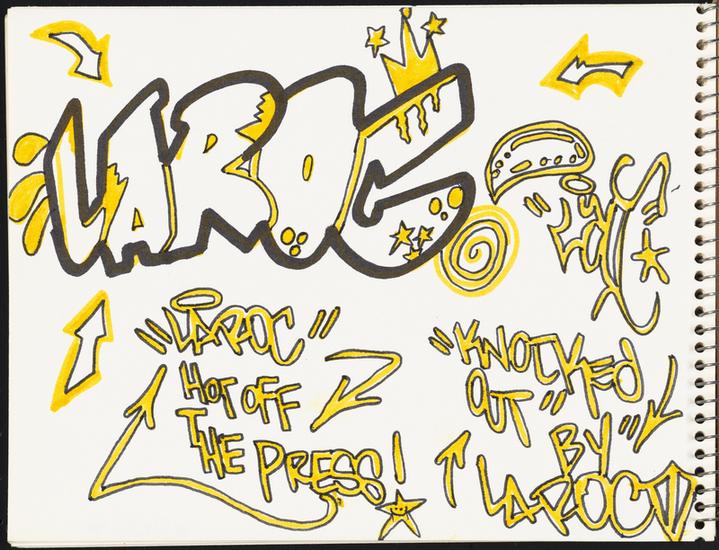 LAROC
"LAROC"
HOT OFF
THE PRESS!
"KNOCKED
OUT"
BY
LAROC